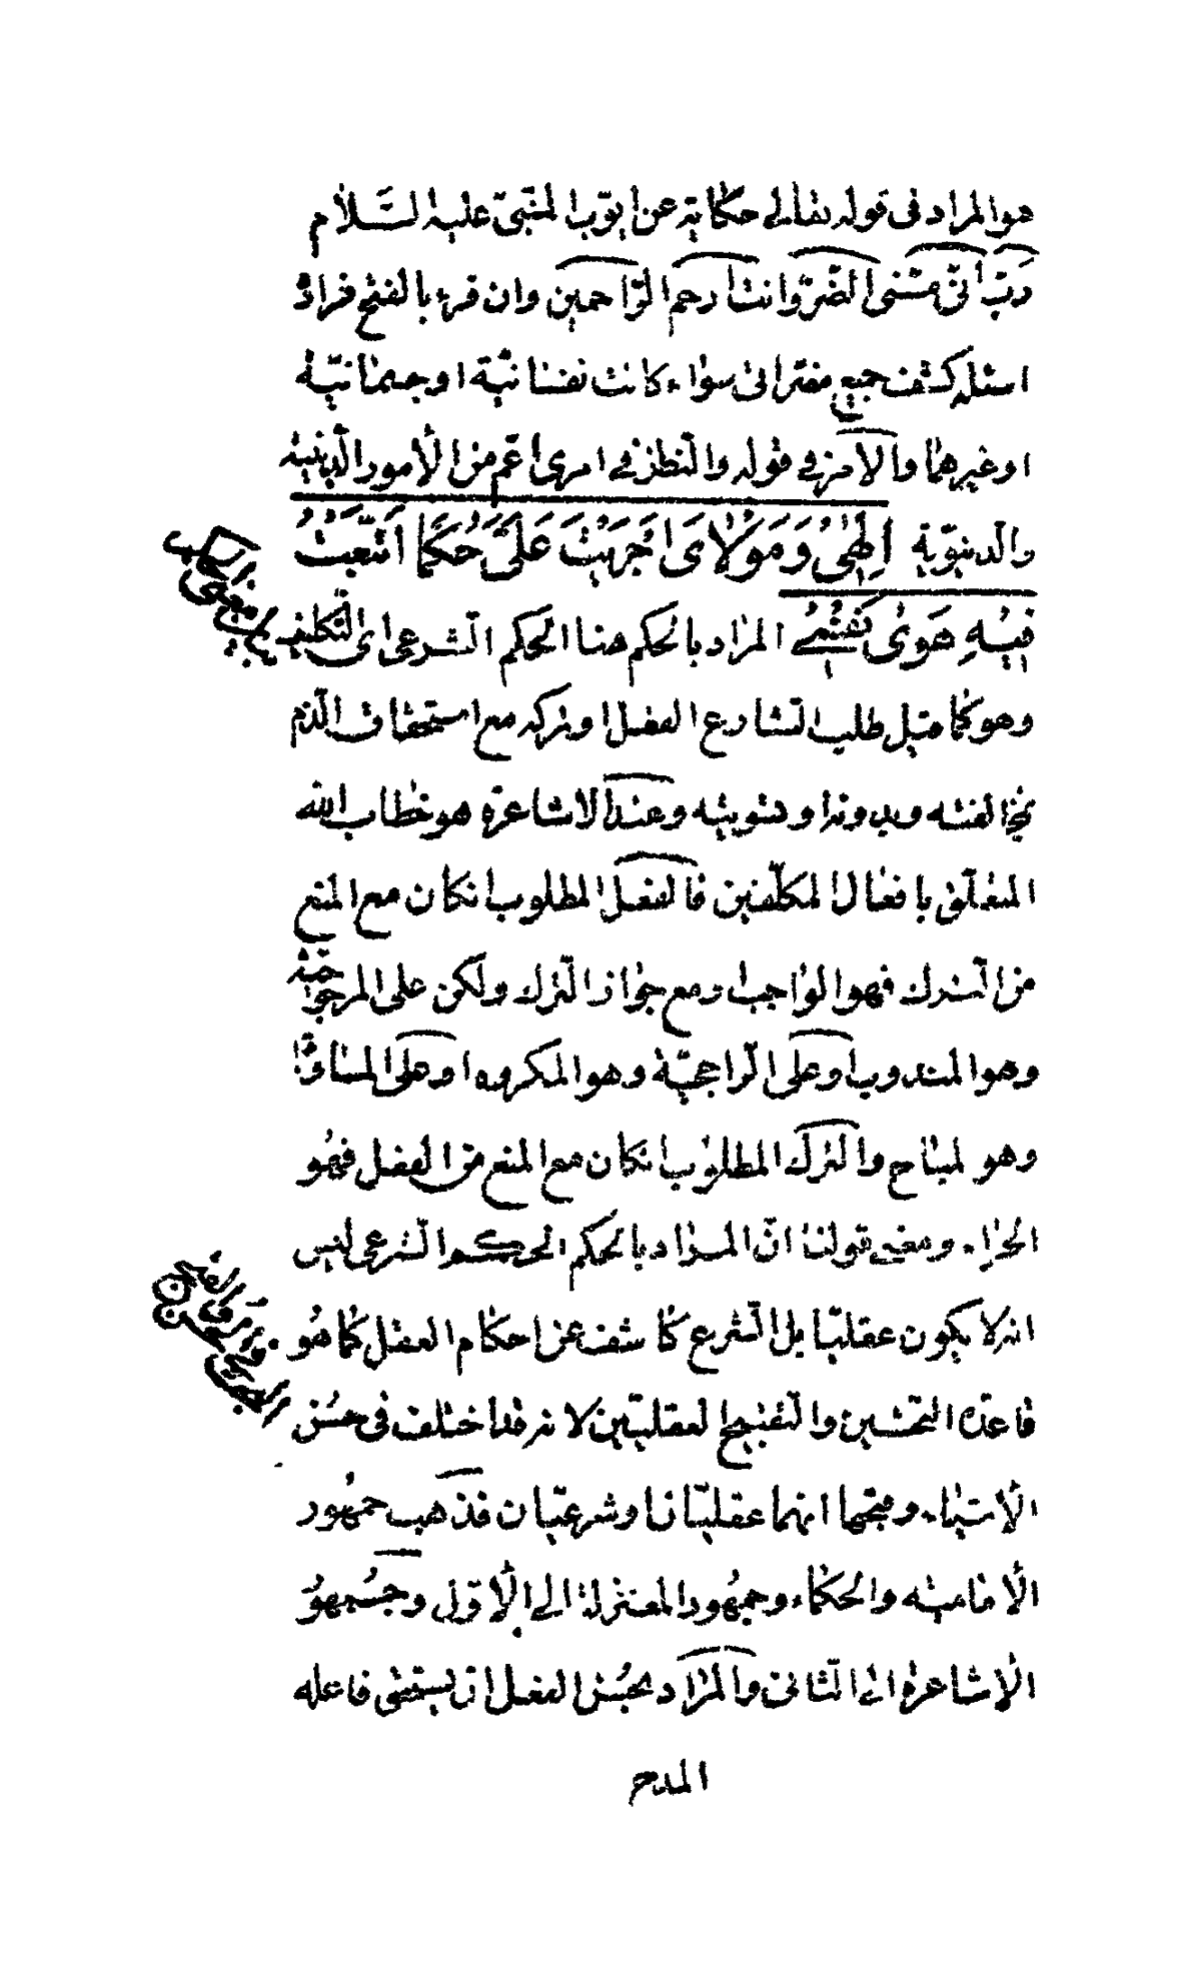 هو المراد فى قوله تعالى حكاية عن ايّوب النّبىّ عليه السّلام
ربّ انّى مسّنى الضّرّ وانت ارحم الرّاحمين وان قرء بالفتح فراد
اسئله كشف جميع مضرّاتى سواء كانت نفسانيّة او جسمانيّة
او غيرهما والامر فى قوله والنّظر فى امرى اعمّ من الأمور الدّينيّه
والدنيويّة اِلٰهى وَمَوْلاىَ اَجْرَيْتَ عَلَىَّ حُكْمًا اتَّبَعْتُ
فيهِ هَوىٰ نَفْسى المراد بالحكم هنا الحكم الشّرعى اى التّكليفى
وهو كما قيل طلب الشارع الفعل او تركه مع استحقاق الذّم
بمخالفته وبدونه او تسويته وعند الاشاعرة هو خطاب الله
المتعلّق بافعال المكلّفين فالفعل المطلوب ان كان مع المنع
من الترك فهو الواجب او مع جواز الترك ولكن على المرجوحيّة
وهو المندوب او على الرّاجحيّة وهو المكروه او على المساواة
وهو لمباح والترك المطلوب ان كان مع المنع من الفعل فهو
الحرام ومعنى قولنا انّ المراد بالحكم الحكم الشّرعى ليس
انه لا يكون عقليّا بل الشّرع كاشف عن احكام العقل كما هو
قاعدة التحسين والتقبيح العقليّين لانه قد اختلف فى حسن
الأشياء وقبحها انهما عقليّان او شرعيّان فذهب جمهور
الأماميّه والحكماء وجمهور المعتزلة الى الاوّل وجمهور
الاشاعرة الى الثانى والمراد بحسن الفعل ان يستحق فاعله
المدح
بيان معنى الحكم